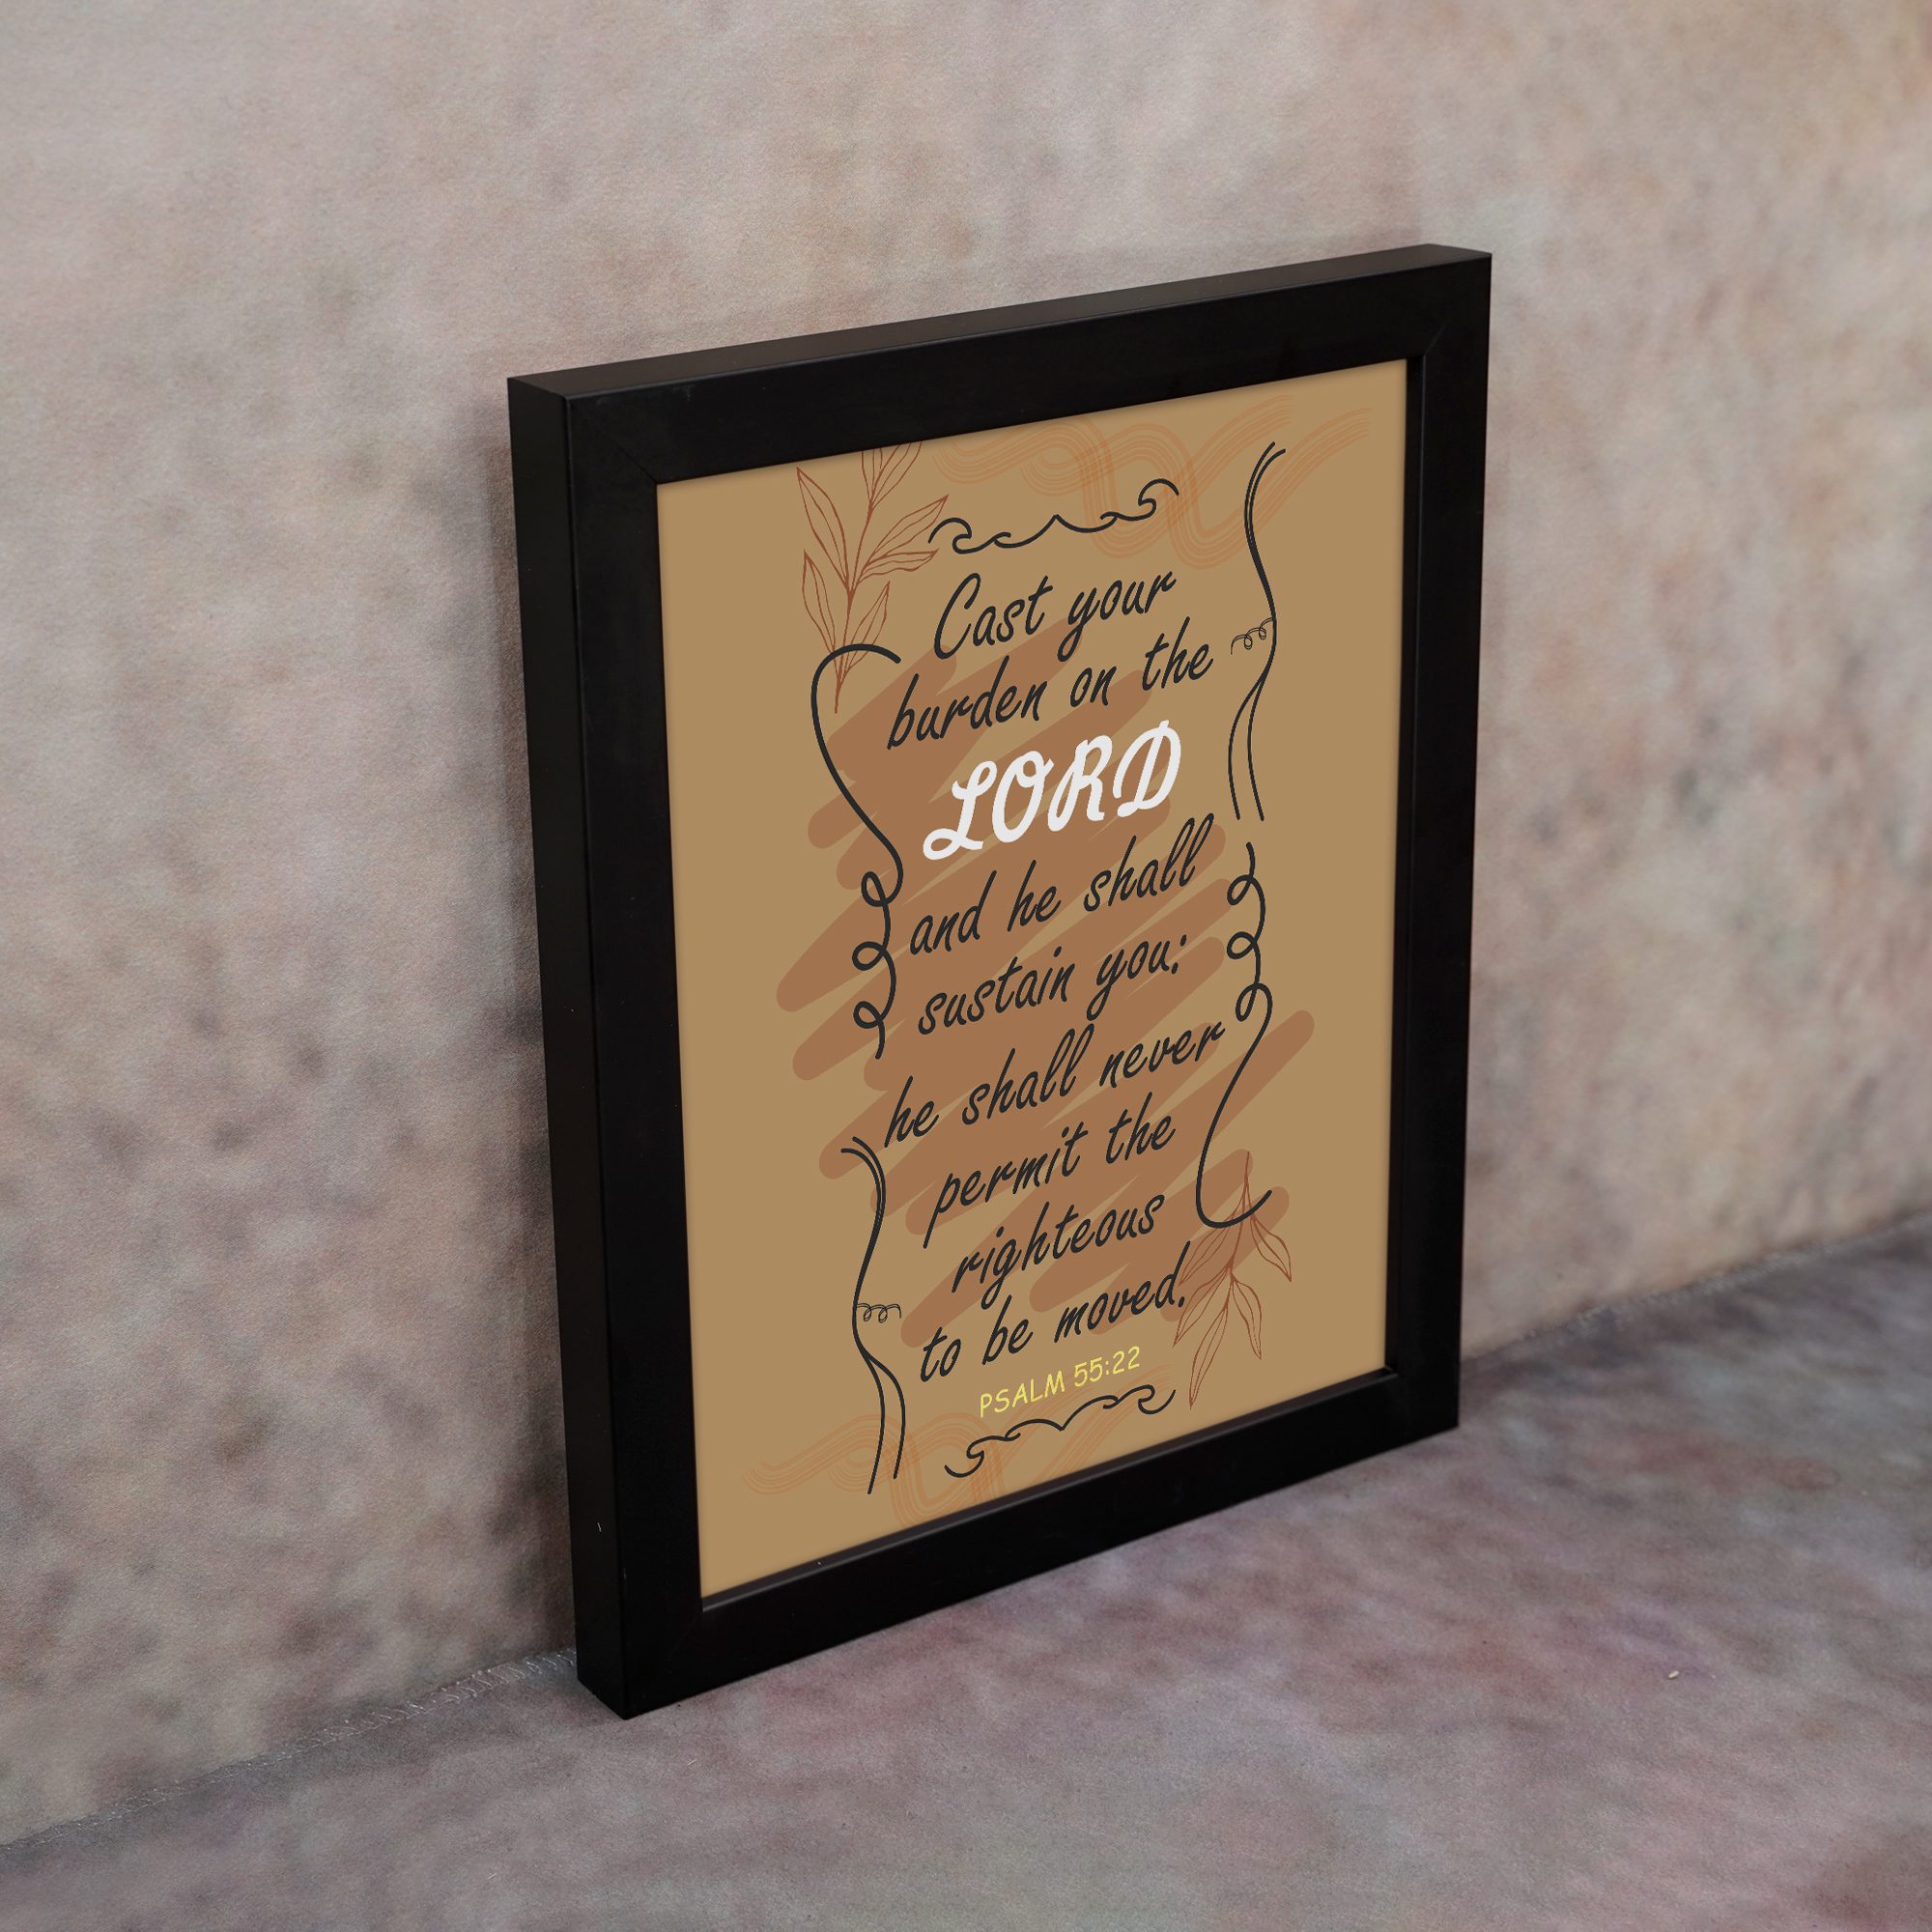 Cast your
burden on the
LORD
and he shall
sustain you:
he shall never
permit the
righteous
to be moved.
PSALM 55:22